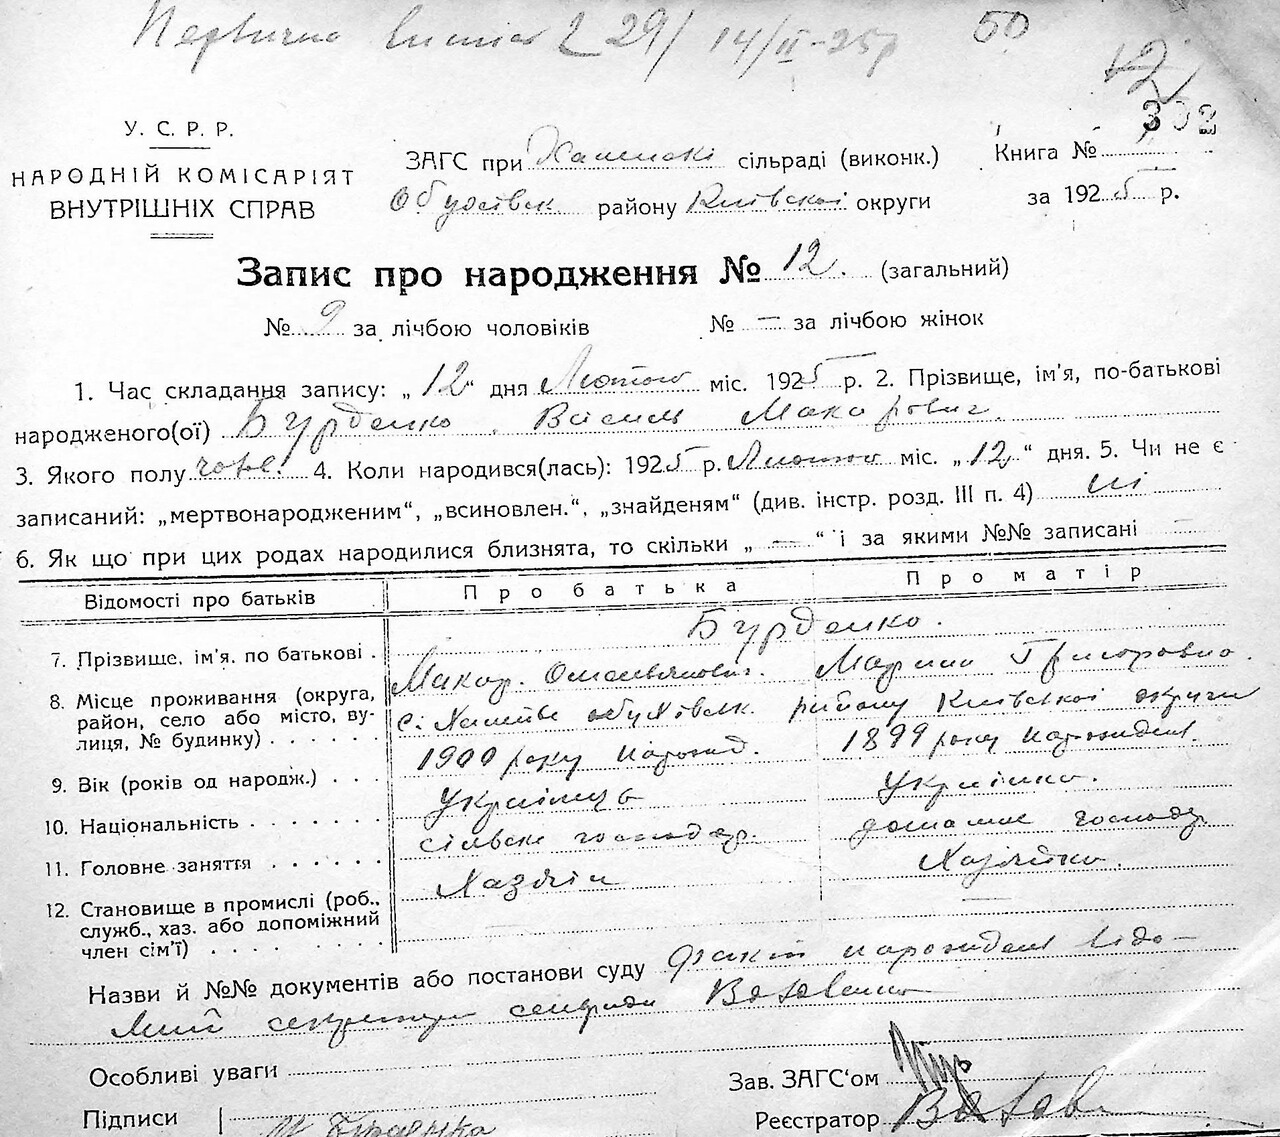 29/ 14/II-25р 50
12
У. С. Р. Р.
НАРОДНІЙ КОМІСАРІЯТ
ВНУТРІШНІХ СПРАВ
ЗАГС при сільраді (виконк.)
району Київскої округи
Книга №
302
за 1925 р.
Запис про народження № 12. (загальний)
№ 9 за лічбою чоловіків № — за лічбою жінок
1. Час складання запису: „12“ дня Лютого міс. 1925 р. 2. Прізвище, ім'я, по-батькові
народженого(ої) Бурденко Василь Макарович.
3. Якого полу чолов. 4. Коли народився(лась): 1925 р. Лютого міс. „12“ дня. 5. Чи не є
записаний: „мертвонародженим“, „всиновлен.“, „знайденям“ (див. інстр. розд. III п. 4) ні
6. Як що при цих родах народилися близнята, то скільки „ — “ і за якими №№ записані —
Відомості про батьків Про батька Про матір
Бурденко.
7. Прізвище, ім'я, по батькові . Макар. Омелянович. Марина Григоровна.
8. Місце проживання (округа,
район, село або місто, ву-
лиця, № будинку) . . . . . . району Київської округи
9. Вік (років од народж.) . . . 1900 року народ. 1899 року народження.
10. Національність . . . . . . . Українець Українка.
11. Головне заняття . . . . . . сільське господар. домашнє господар.
12. Становище в промислі (роб.,
служб., хаз. або допоміжний
член сім'ї) . . . . . . . Хазяїн Хазяйка.
Назви й №№ документів або постанови суду факт народження відо-
мий секретарю сельради
Особливі уваги
Підписи
Зав. ЗАГС'ом
Реєстратор